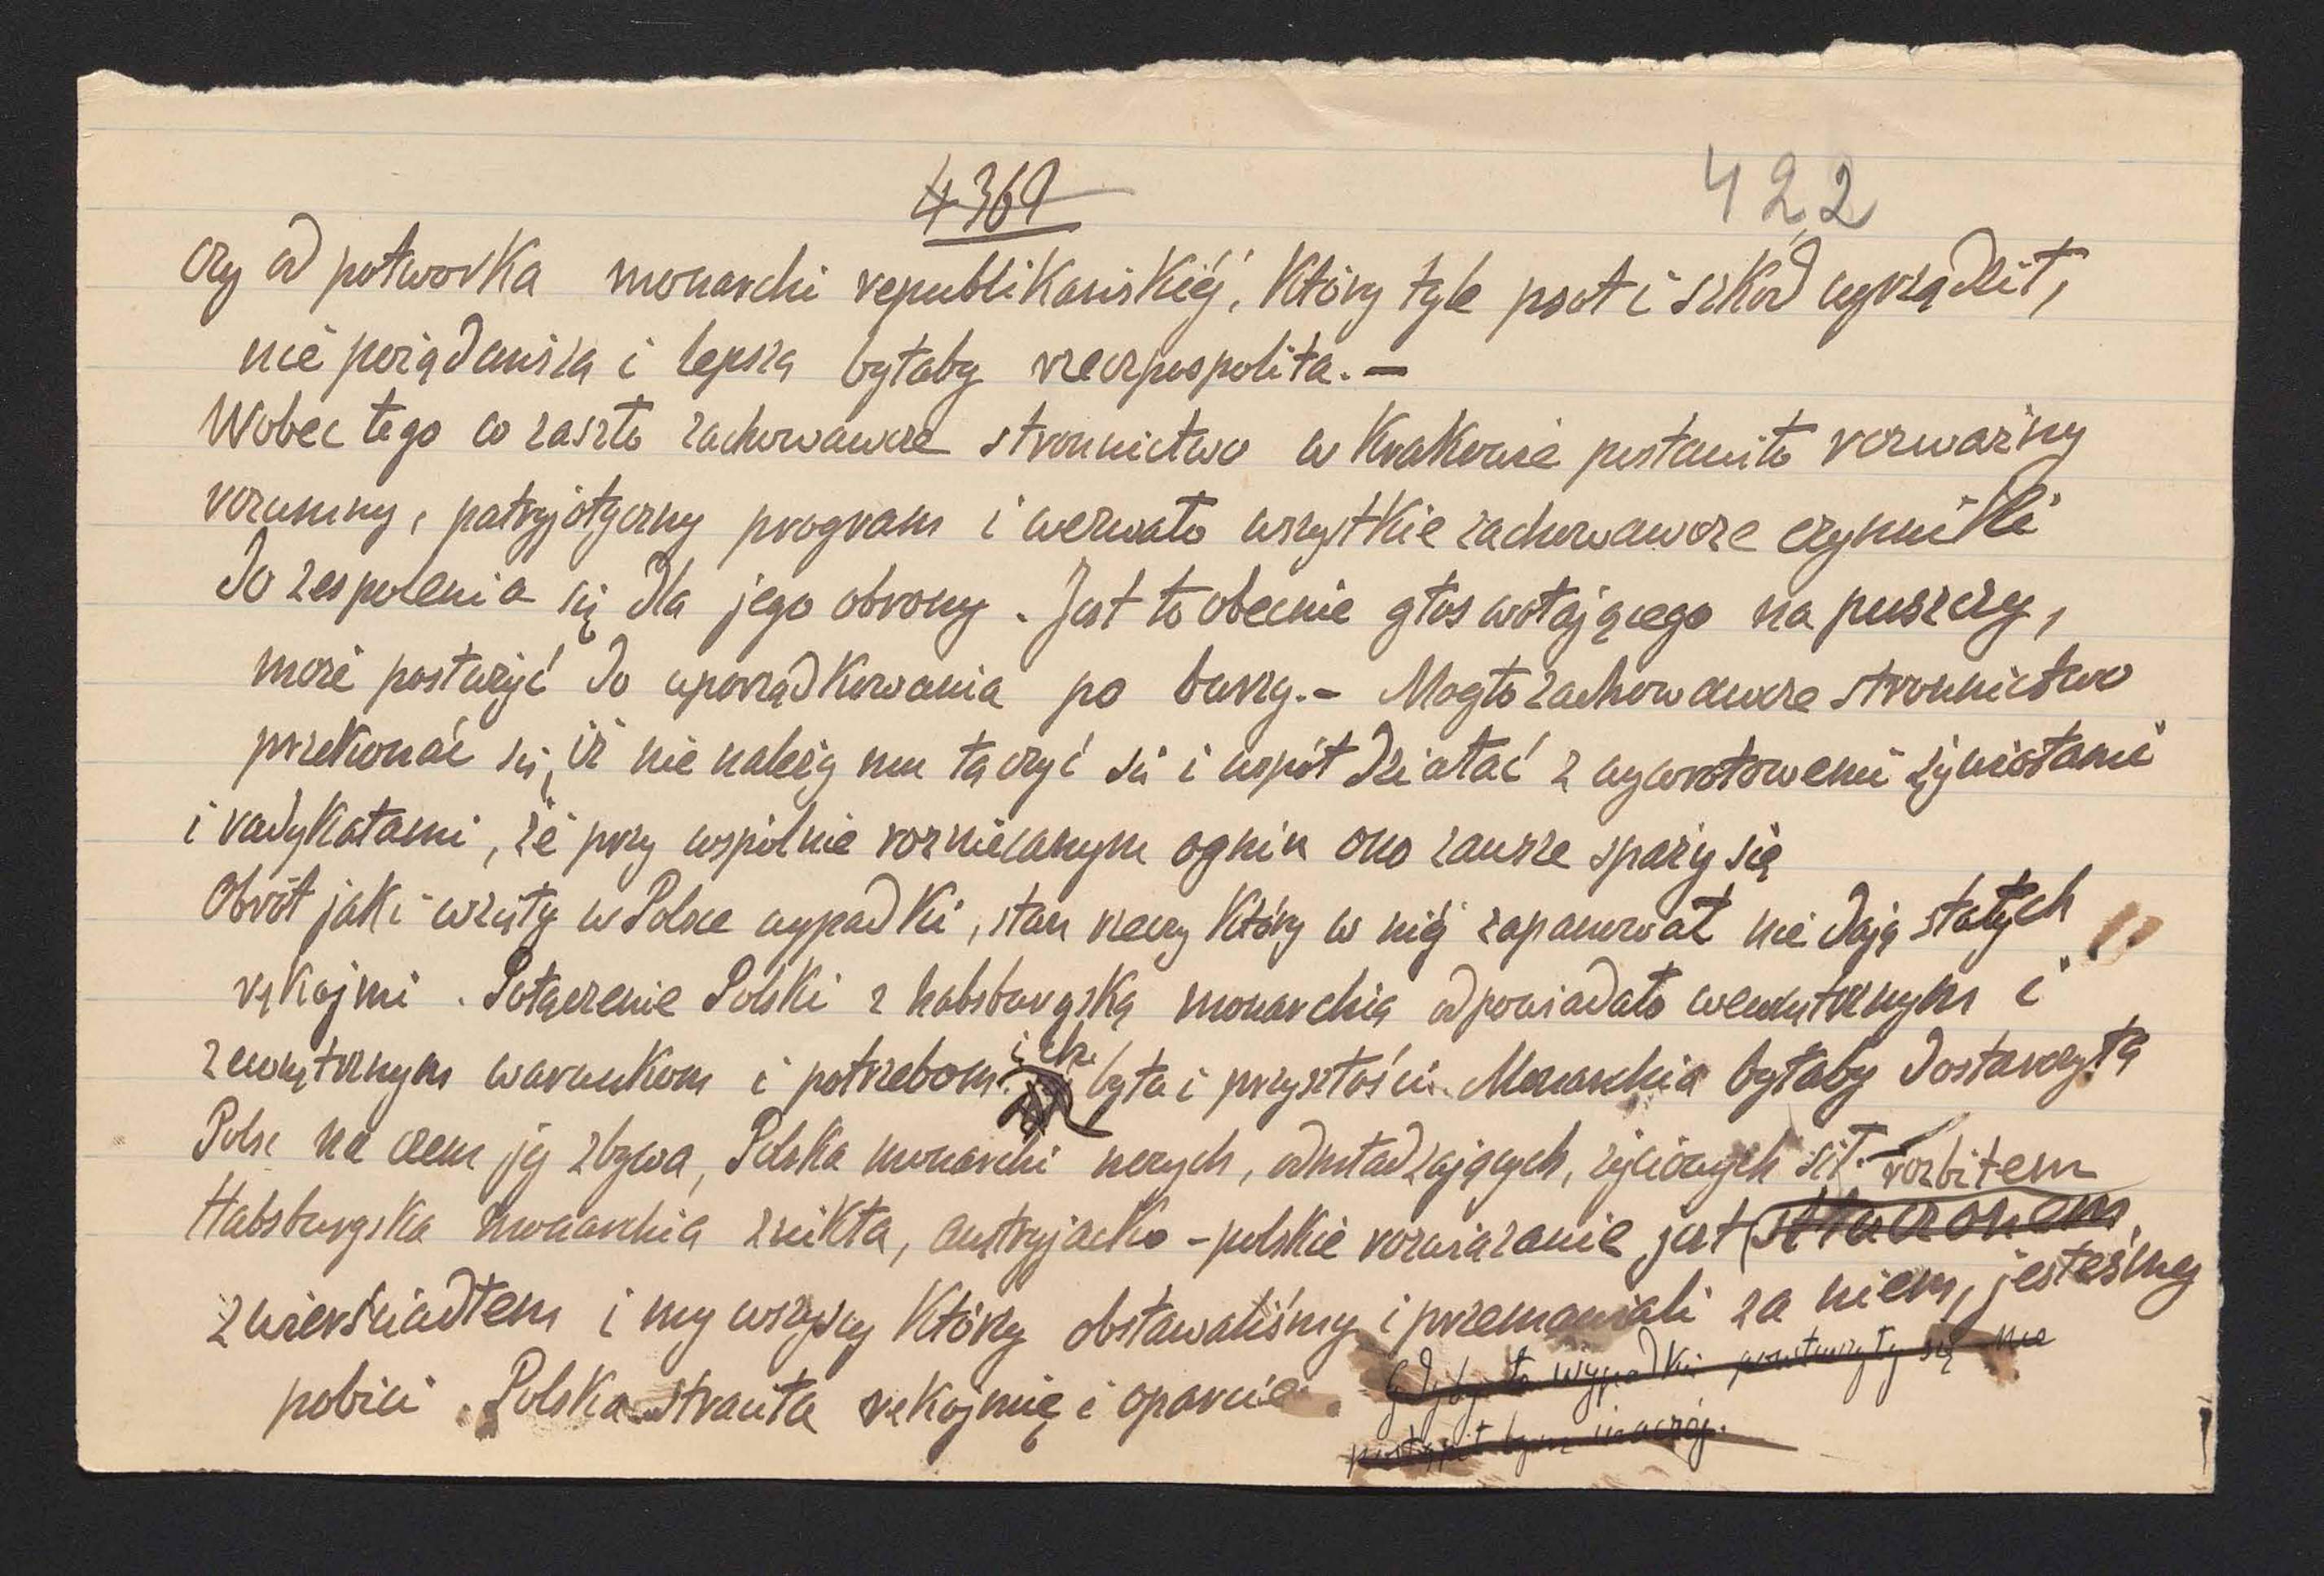 4369
422
czy od potworka monarchi republikańskiéj, który tyle psot i szkód wyrządził,
nie pożądańszą i lepszą byłaby rzeczpospolita. —
Wobec tego co zaszło zachowawcze stronnictwo w Krakowie postawiło rozważny
rozumny, patryjotyczny program i wezwało wszystkie zachowawcze czynniki
do zespolenia się dla jego obrony. Jest to obecnie głos wołającego na puszczy,
może posłużyć do uporządkowania po burzy. – Mogło zachowawcze stronnictwo
przekonać się, iż nie należy mu łączyć się i współdziałać z wywrotowemi żywiołami
i radykałami, że przy wspólnie rozniecanym ogniu ono zawsze sparzy się
Obrót jaki wzięły w Polsce wypadki, stan rzeczy który w niéj zapanował nie dają stałych
rękojmi. Połączenie Polski z habsburgską monarchią odpowiadało wewnętrznym i
zewnętrznym warunkom i potrzebom ich bytu i przyszłości. Monarchia byłaby dostarczyła
Polsc na czem jéj zbywa, Polska monarchi nowych, odmładzających, życiowych sił. rozbitem
Habsburgska monarchia znikła, austryjacko-polskie rozwiazanie jest stłuczonem
zwierściadłem i my wszyscy którzy obstawaliśmy i przemawiali za niem, jesteśmy
pobici. Polska straciła rękojmię i oparcie. Gdyby te wypadki powtórzyły się nie
postąpił bym inaczéj.